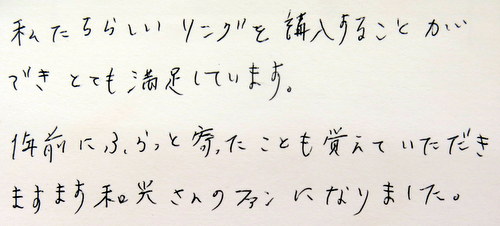 私たちらしいリングを購入することが
できとても満足しています。
1年前にふらっと寄ったことも覚えていただき
ますます和光さんのファンになりました。